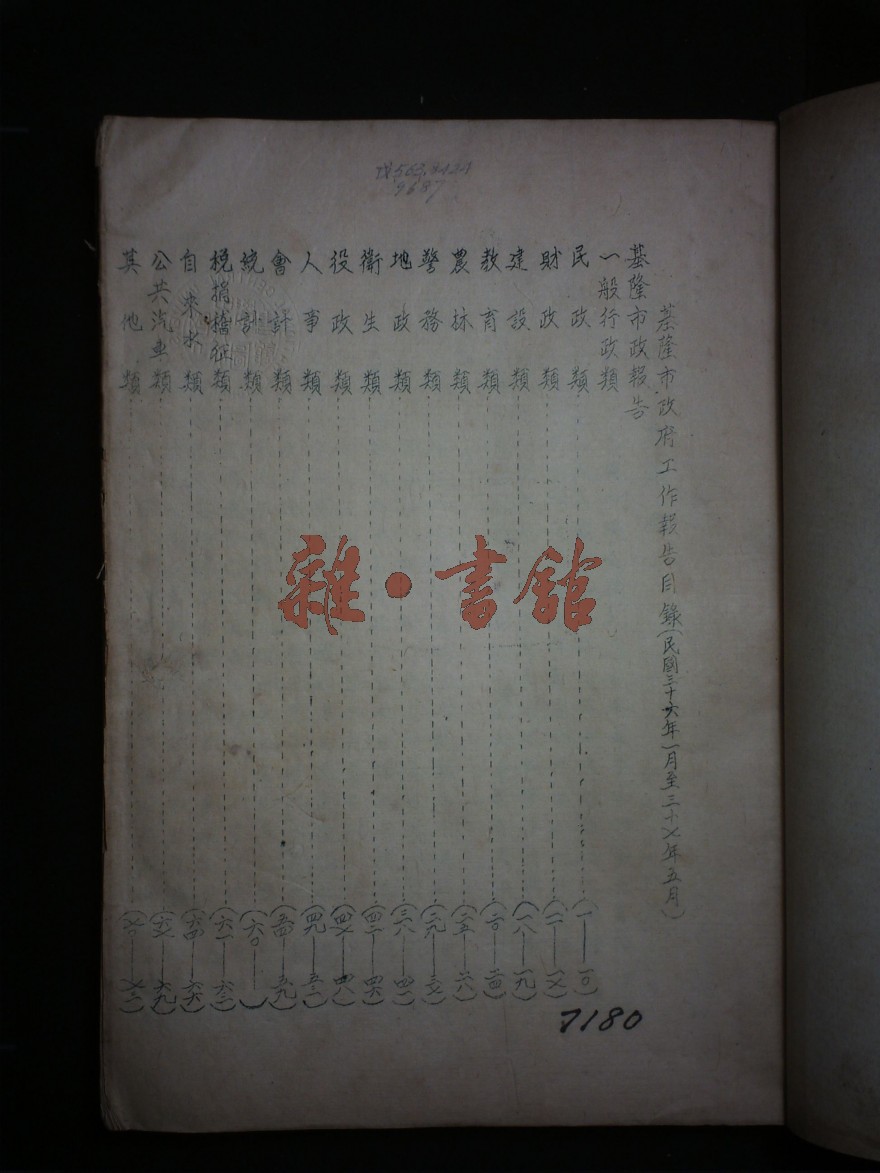 기565.2424
9687
基隆市政府工作報告目錄(民國三十六年一月至三十七年五月)
基隆市政報告
一般行政類
民政類(一——一〇)
財政類(一一——一七)
建設類(一八——一九)
教育類(二〇——二四)
農林類(二五——二八)
警務類(二九——三七)
地政類(三八——四一)
衛生類(四二——四六)
役政類(四七——四八)
人事類(四九——五三)
會計類(五四——五九)
統計類(六〇——)
稅捐稽征類(六一——六三)
自來水類(六四——六六)
公共汽車類(六七——六九)
其他類(七〇——七二)
7180
雜·書館